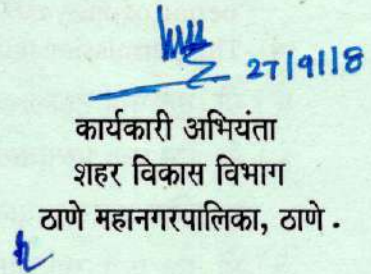 27/9/18
कार्यकारी अभियंता
शहर विकास विभाग
ठाणे महानगरपालिका, ठाणे .